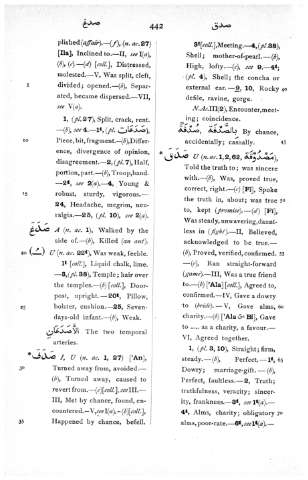 صدغ
442
صدق
plished (affair).—(f), (n. ac. 27)
[IIa], Inclined to.—II, see I(a),
(b), (c)—(d) [coll.], Distressed,
molested.—V, Was split, cleft,
5
divided; opened.—(b), Separ-
ated, became dispersed.—VII,
see V(a).
1, (pl. 27), Split, crack, rent.
—(b), see 4.—1², (pl. صَدَقَات),
10
Piece, bit, fragment.—(b), Differ-
ence, divergence of opinion,
disagreement.—2, (pl. 7), Half,
portion, past.—(b), Troop, band.
—2⁶, see 2(a).—4, Young &
15
robust, sturdy, vigorous.—
24, Headache, megrim, neu-
ralgia.—25, (pl. 10), see 2(a).
صَدَغَ A (n. ac. 1), Walked by the
side of.—(b), Killed (an ant).
20
U (n. ac. 22²), Was weak, feeble.
1² [coll.], Liquid chalk, lime.
—3, (pl. 38), Temple; hair over
the temples.—(b) [coll.], Door-
post, upright.—20², Pillow,
25
bolster, cushion.—25, Seven-
days-old infant.—(b), Weak.
الأَصْدَغَانِ The two temporal
arteries.
صَدَفَ* I, U (n. ac. 1, 27) ['An],
30
Turned away from, avoided.—
(b), Turned away, caused to
revert from.—(c) [coll.], see III.—
III, Met by chance, found, en-
countered.—V, see I(a).—(b) [coll.],
35
Happened by chance, befell.
3² [coll.], Meeting.—4, (pl. 38),
Shell; mother-of-pearl.—(b),
High, lofty.—(c), see 2.—4²,
(pl. 4), Shell; the concha or
external ear.—9, 10, Rocky
defile, ravine, gorge.
N. Ac. III(2), Encounter, meet-
ing; coincidence.
صُدْفَةً, بِالصُّدْفَةِ By chance,
accidentally; casually.
صَدَقَ* U (n. ac. 1, 2, 62, مَصْدُوقَة),
Told the truth to; was sincere
with.—(b), Was, proved true,
correct, right.—(c) [Fī], Spoke
the truth in, about; was true
to, kept (promise).—(d) [Fī],
Was steady, unwavering, daunt-
less in (fight).—II, Believed,
acknowledged to be true.—
(b), Proved, verified, confirmed.
—(c), Ran straight-forward
(game).—III, Was a true friend
to.—(b) ['Ala] [coll.], Agreed to,
confirmed.—IV, Gave a dowry
to (bride).—V, Gave alms,
charity.—(b) ['Ala & Bi], Gave
to .... as a charity, a favour.—
VI, Agreed together.
1, (pl. 3, 10), Straight; firm,
steady.—(b), Perfect.—1²,
Dowry; marriage-gift.—(b),
Perfect, faultless.—2, Truth;
truthfulness, veracity; sincer-
ity, frankness.—3², see 1²(a).—
4², Alms, charity; obligatory
alms, poor-rate.—6², see 1²(a).—